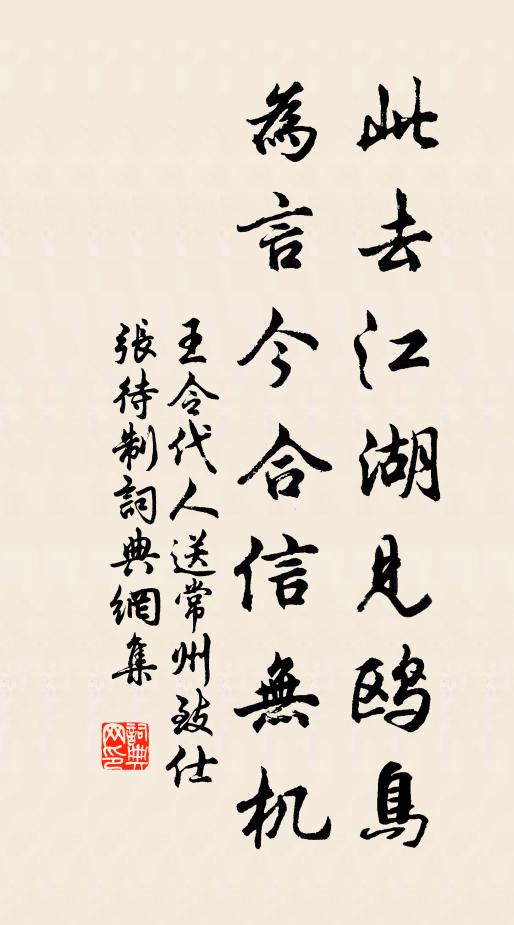 此去江湖見鸥鳥
為言今合信無机
王令代人送常州致仕
張待制詞典網集
詞典
网印